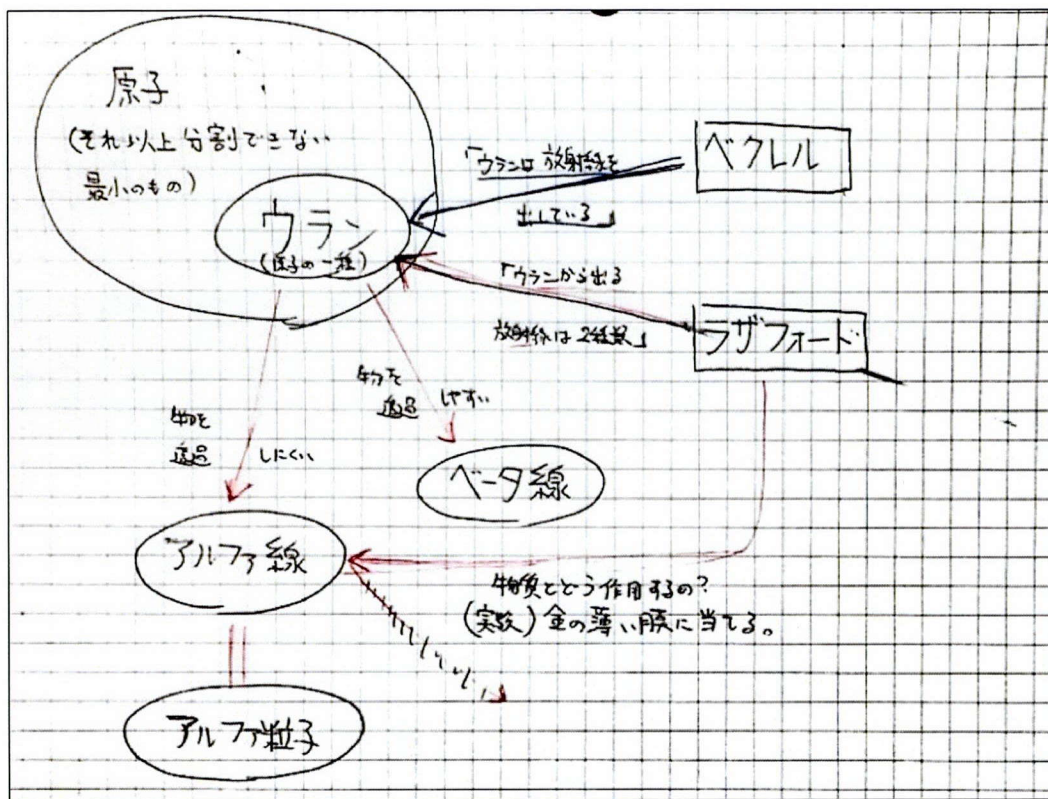 原子
(それ以上分割できない
最小のもの)
ウラン
(原子の一種)
「ウランは放射線を
出している」
ベクレル
「ウランから出る
放射線は2種類」
ラザフォード
物を
透過しにくい
物を
透過しやすい
ベータ線
アルファ線
物質とどう作用するの?
(実験)金の薄い膜に当てる。
アルファ粒子